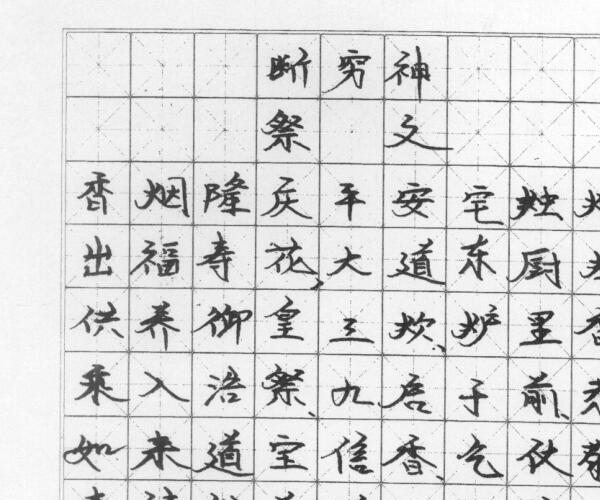 断穷神
祭文
香烟隆庆平安宅烛
出福寺花,大道东厨
供养御皇三炊、炉里
乘入浩祭、九启于前、
如来道宝信香、乞伏